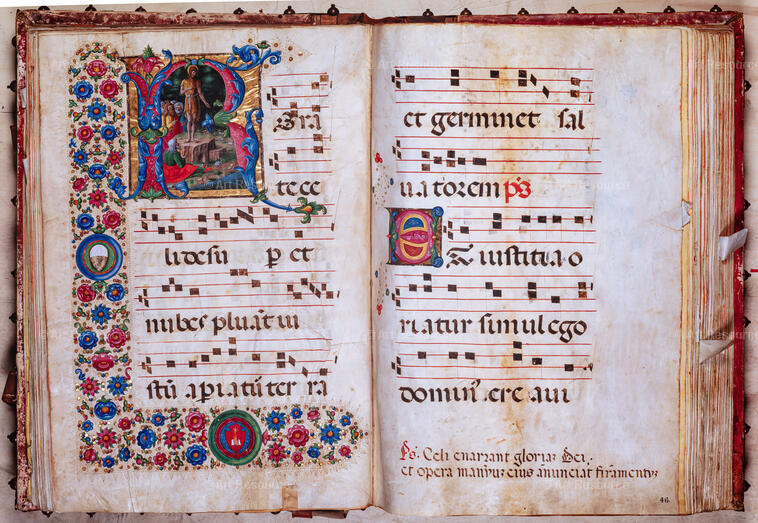 R ora
te ce
li desu ꝑ et
nubes pluāt iu
stū apiatū ter ra
et germinet sal
uatorem p̄s
Et iustitia o
riatur simul ego
domin̄ creaui
Ps. Celi enarrant gloriaꝫ Dei.
et opera manuuꝫ eius an̄unciat firamentuꝫ
46.